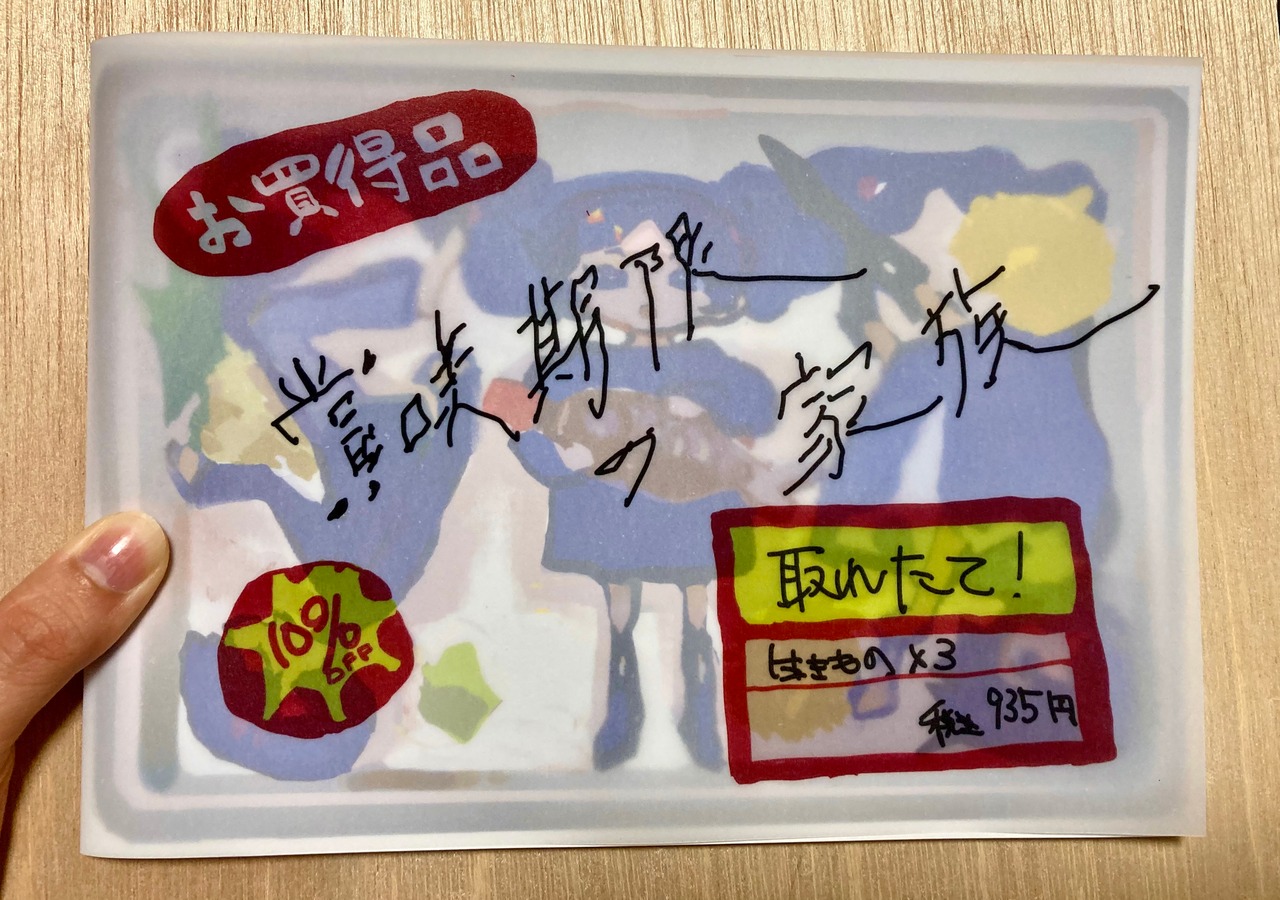 お買得品
賞味期限
の家族
10%
OFF
取れたて!
はきもの×3
税込 935円